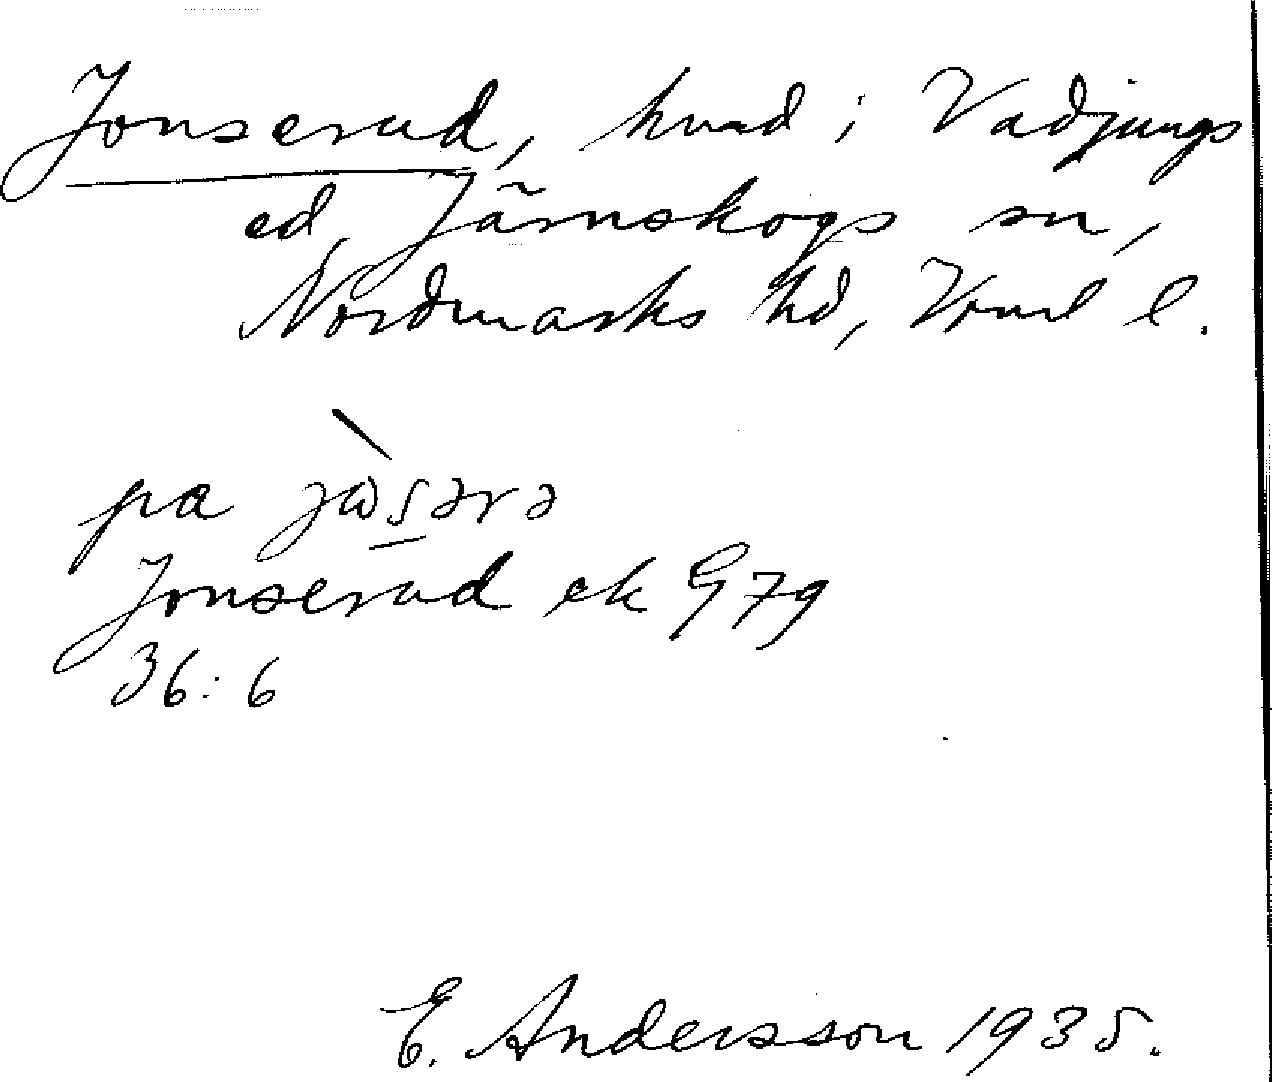 Jonserud, hmd i Vadjungs
ed, Järnskogs sn,
Nordmarks hd, Vrml l.
pa jɷ̀sərə
Jonserud ek G 79
36:6
E. Andersson 1935.